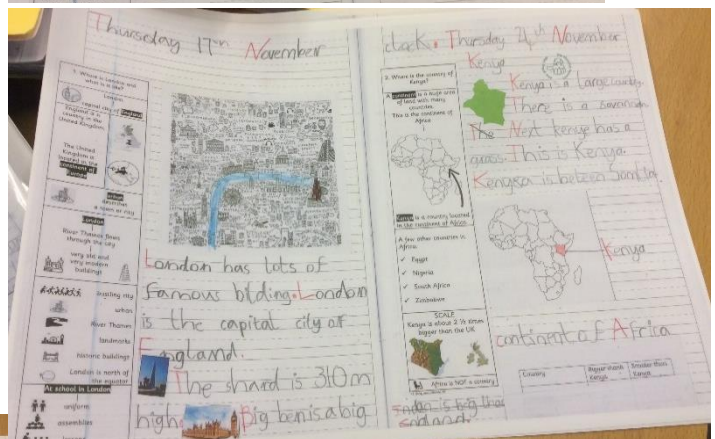 Thursday 17th November
1. Where is London and
what is it like?
London
capital city of England
England is a
country in the
United Kingdom
The United
Kingdom is
located in the
continent of
Europe
urban
describes
a town or city
London
River Thames flows
through the city
very old and
very modern
buildings
bustling city
urban
River Thames
landmarks
historic buildings
London is north of
the equator
At school in London
uniform
assemblies
London has lots of
famous bilding. London
is the capital city of
England.
The shard is 310m
high
Big ben is a big
clock. Thursday 24th November
Kenya
2. Where is the country of
Kenya?
A continent is a huge area
of land with many
countries.
This is the continent of
Africa
Kenya is a country located
in the continent of Africa.
A few other countries in
Africa:
✓ Egypt
✓ Nigeria
✓ South Africa
✓ Zimbabwe
SCALE
Kenya is about 2 ½ times
bigger than the UK
Africa is NOT a country
Kenya is a large country
There is a savannah
The Next kenya has a
grass. This is Kenya
Kenya
continent of Africa
Country
Bigger than
Kenya
Smaller than
Kenya